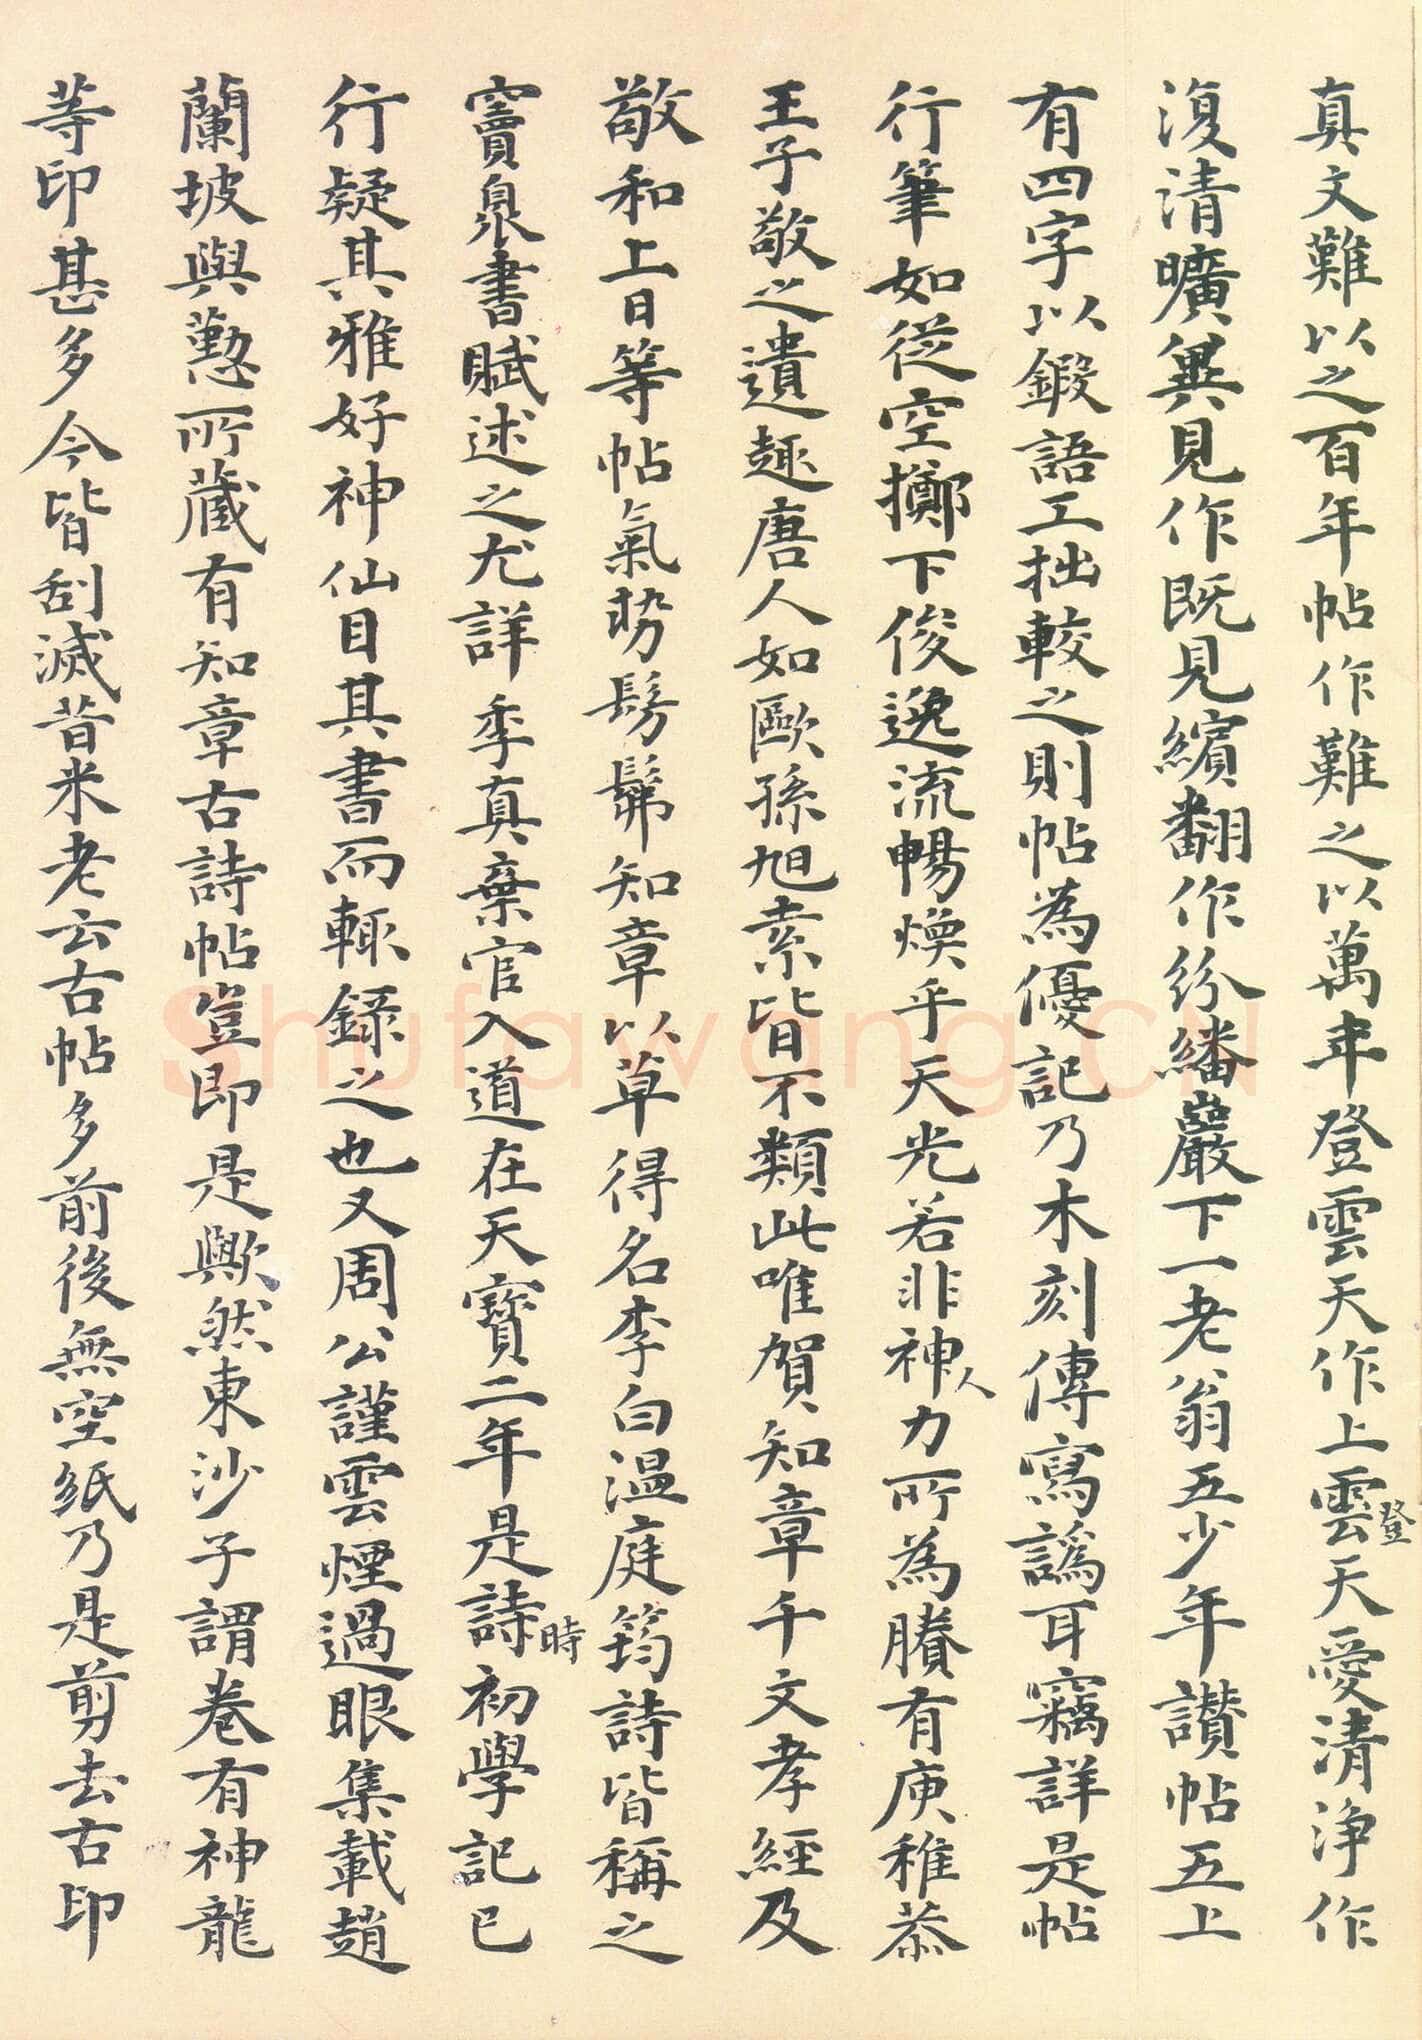 真文難以之百年帖作難之以萬年登雲天作上雲天愛清淨作
登
復清曠異見作既見繽翻作紛繙巖下一老翁五少年讚帖五上
有四字以鍛語工拙較之則帖為優記乃木刻傳寫譌耳竊詳是帖
行筆如從空擲下俊逸流暢煥乎天光若非神力所為賸有庾稚恭
人
王子敬之遺趣唐人如歐孫旭素皆不類此唯賀知章千文孝經及
敬和上日等帖氣勢髣髴知章以草得名李白溫庭筠詩皆稱之
竇臮書賦述之尤詳季真棄官入道在天寶二年是詩初學記已
時
行疑其雅好神仙目其書而輒錄之也又周公謹雲煙過眼集載趙
蘭坡與懃所藏有知章古詩帖豈即是歟然東沙子謂卷有神龍
等印甚多今皆刮滅昔米老云古帖多前後無空紙乃是剪去古印
Shufawang.CN